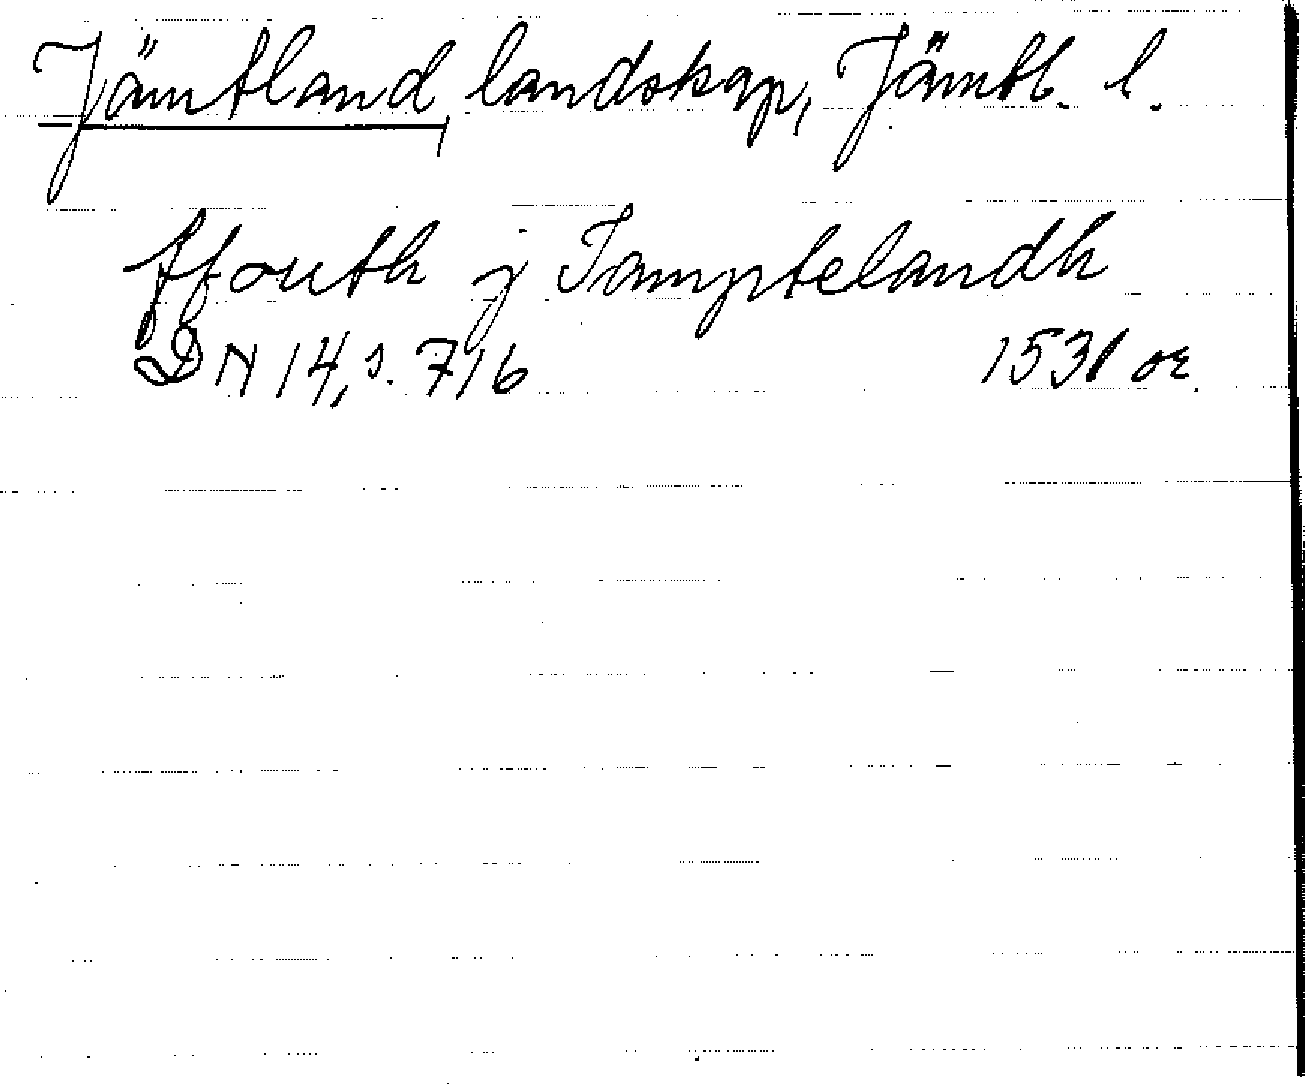 Jämtland, landskap, Jämtl. l.
ffouth j Iamptelandh
DN 14, s. 716 1531 or.